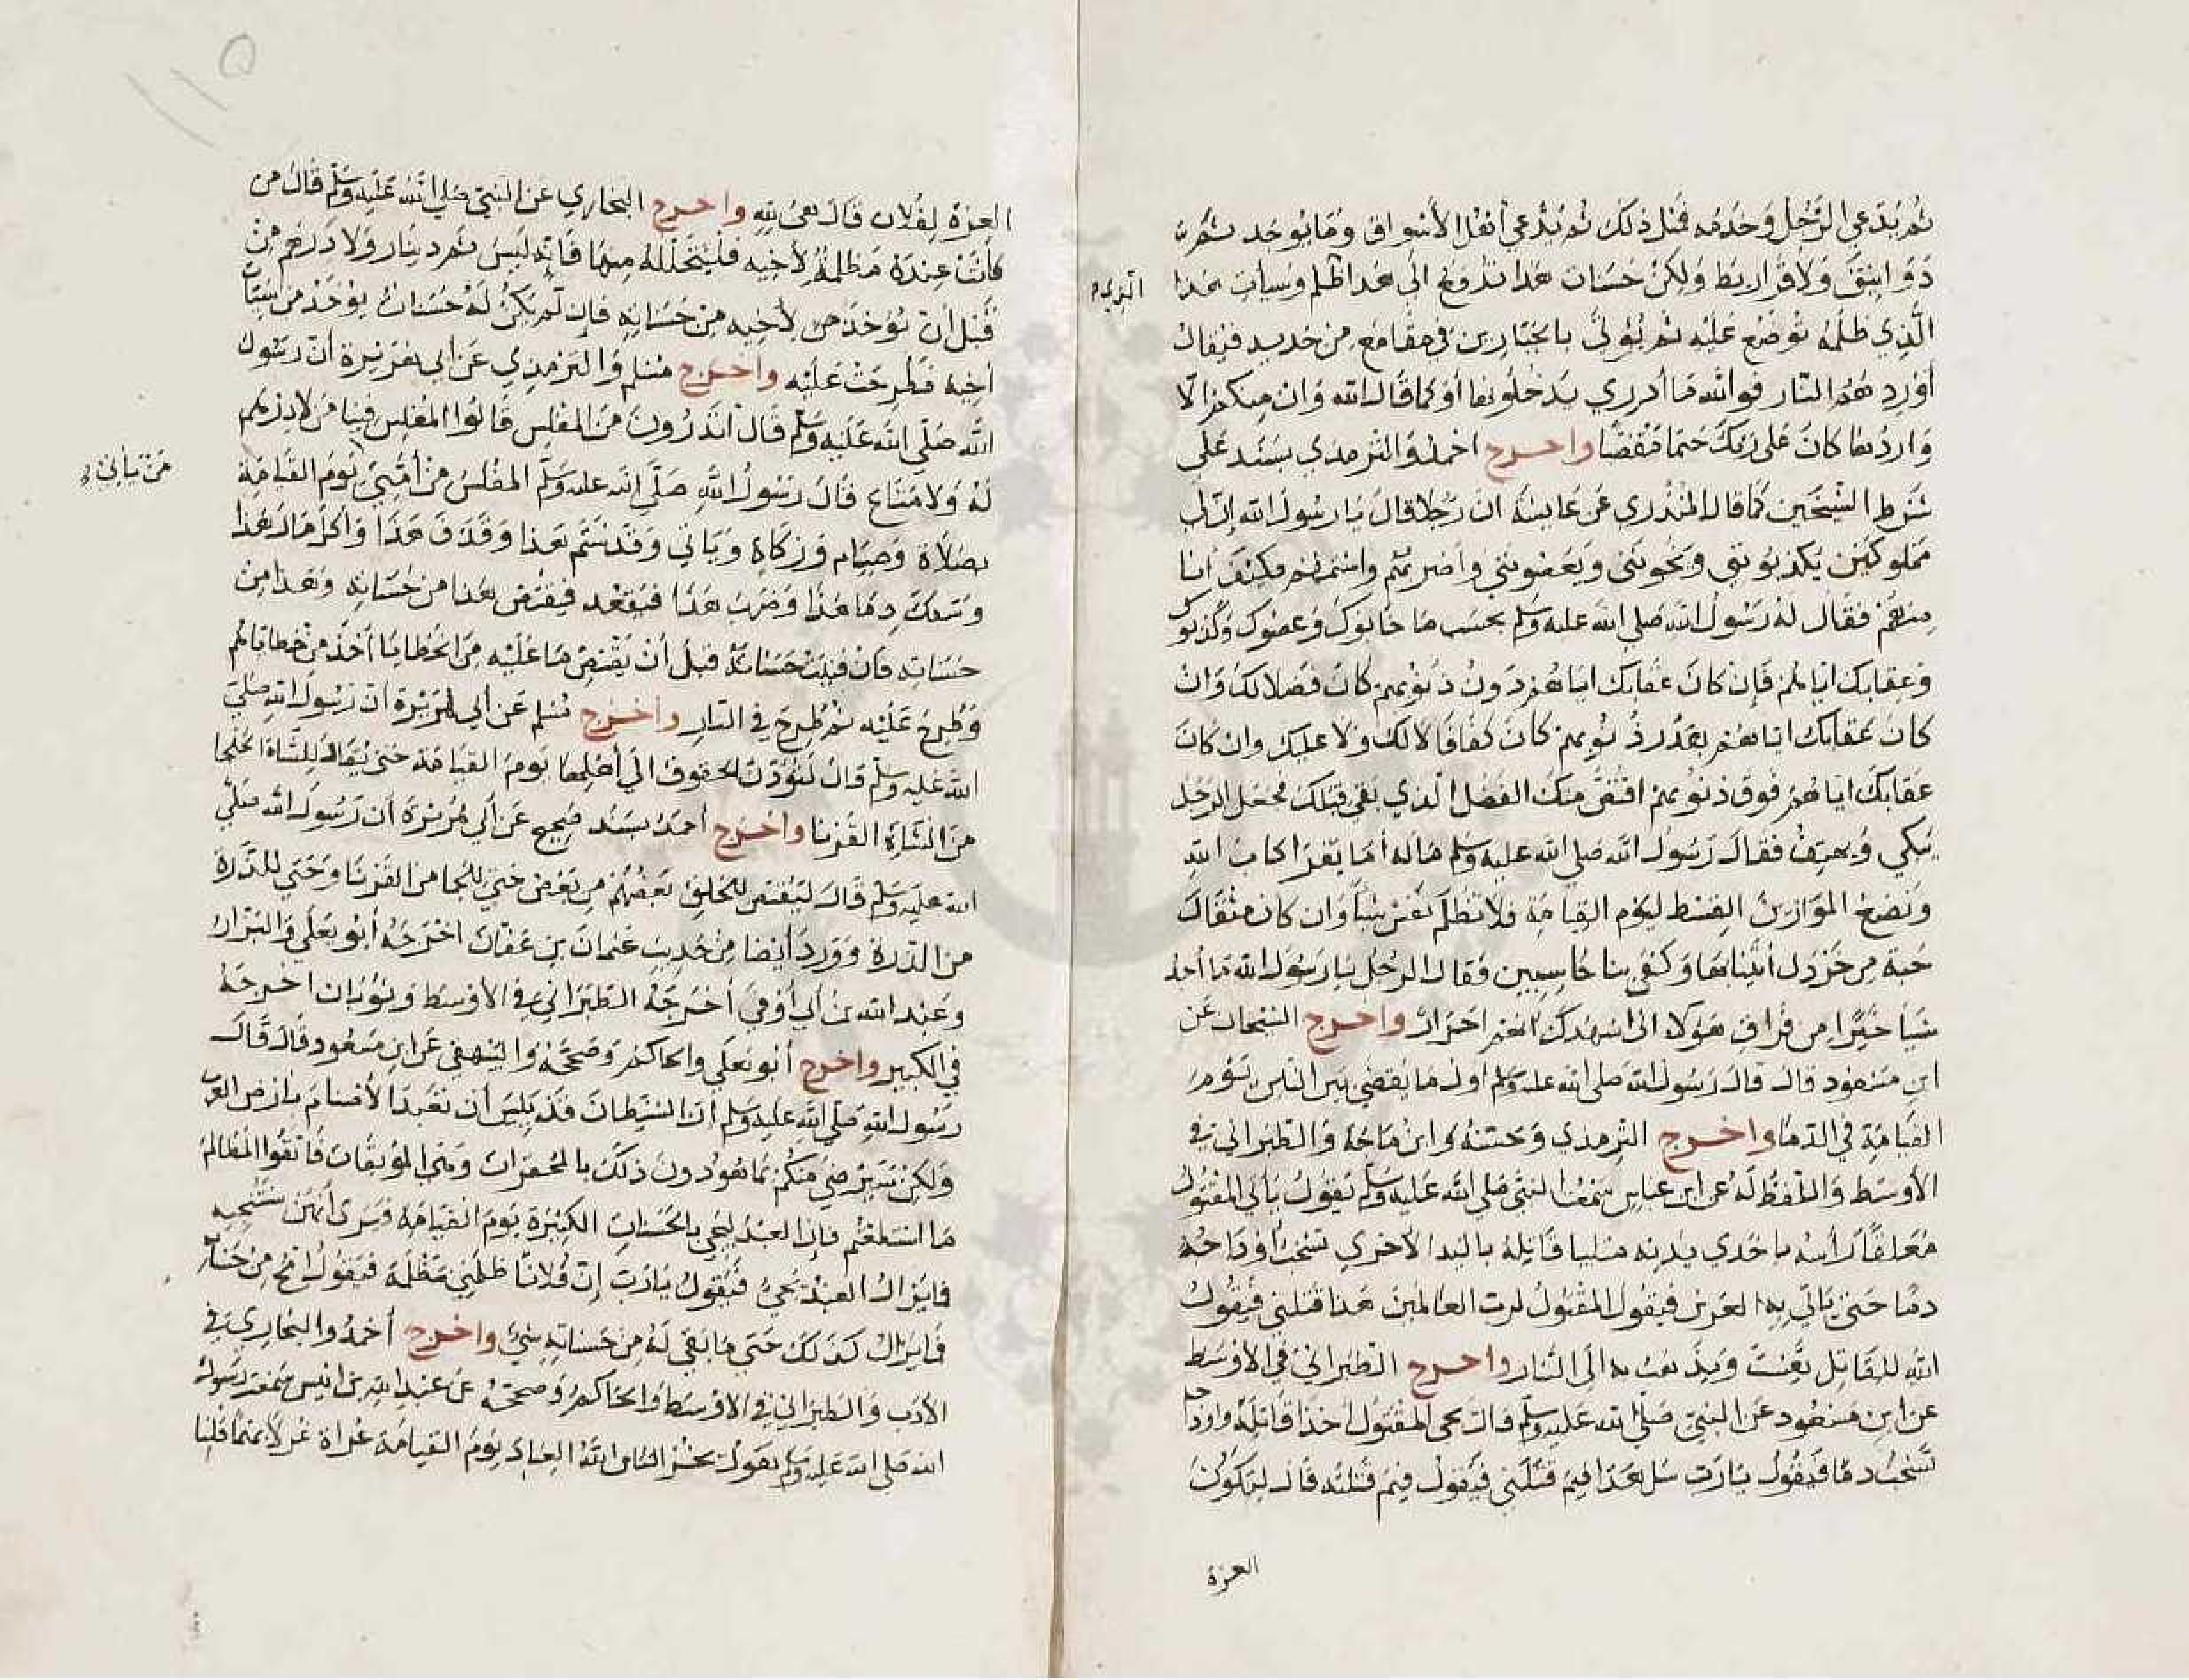 ثم يدعى الرجل وخدمه قبل ذلك ثم يدعى أهل الأسواق وما يوجد ثم
دوانيق ولا قراريط ولكن حسنات هذا تدفع الى هذا ظلم وسيات هذا
الذي ظلمه توضع عليه ثم يؤتى بالجبارين في مقامع من حديد فيقال
أوردوهم النار فوالله ما أدري يدخلونها أو كما قال الله وان منكم الا
واردها كان على ربك حتما مقضيا واخرج احمد والترمذي بسند على
شرط الشيخين كما قال المنذري عن عايشة ان رجلا قال يا رسول الله إن لي
مملوكين يكذبونني ويخونني ويعصونني وأضربهم واشتمهم فكيف أنا
منهم فقال له رسول الله صلى الله عليه وسلم بحسب ما خانوك وعصوك وكذبوك
وعقابك اياهم فإن كان عقابك اياهم دون ذنوبهم كان فضلا لك وان
كان عقابك اياهم بقدر ذنوبهم كان كفافا لا لك ولا عليك وان كان
عقابك اياهم فوق ذنوبهم اقتص منك الفضل الذي بقي قبلك فجعل الرجل
يبكي ويهتف فقال رسول الله صلى الله عليه وسلم ما له أما يقرا كتاب الله
ونضع الموازين القسط ليوم القيامة فلا تظلم نفس شيأ وان كان مثقال
حبة من خردل أتينا بها وكفى بنا حاسبين فقال الرجل يا رسول الله ما أجد
شيأ خيرا من فراق هؤلا اني اشهدك انهم احرار واخرج الشيخان عن
ابن مسعود قال قال رسول الله صلى الله عليه وسلم اول ما يقضى بين الناس يوم
القيامة في الدما واخرج الترمذي وحسنه وابن ماجة والطبراني في
الأوسط واللفظ له عن ابن عباس سمعت النبي صلى الله عليه وسلم يقول يأتي المقتول
معلقا رأسه باحدى يديه ملببا قاتله باليد الأخرى تشخب أوداجه
دما حتى يأتي به العرش فيقول المقتول لرب العالمين هذا قتلني فيقول
الله للقاتل تعست ويذهب به الى النار واخرج الطبراني في الأوسط
عن ابن مسعود عن النبي صلى الله عليه وسلم قال يجي المقتول آخذا قاتله وأوداجه
تشخب دما فيقول يا رب سل هذا فيم قتلني فيقول فيم قتلته قال لتكون
العزة
العزة لفلان قال هي لله واخرج البخاري عن النبي صلى الله عليه وسلم قال من
كانت عنده مظلمة لأخيه فليتحلله منها فانه ليس ثم دينار ولا درهم من
قبل أن يؤخذ من لأخيه من حسناته فإن لم يكن له حسنات يوخذ من سيآت
أخيه فطرحت عليه واخرج مسلم والترمذي عن أبي هريرة أن رسول
الله صلى الله عليه وسلم قال أتدرون من المفلس قالوا المفلس فينا من لا درهم
له ولا متاع فقال رسول الله صلى الله عليه وسلم المفلس من أمتي يوم القيامة
من يأتي
بصلاة وصيام وزكاة ويأتي وقد شتم هذا وقذف هذا وأكل مال هذا
وسفك دما هذا وضرب هذا فيقعد فيقتص هذا من حسناته وهذا من
حسناته فان فنيت حسناته قبل أن يقتص ما عليه من الخطايا أخذ من خطاياهم
وطرح عليه ثم طرح في النار واخرج مسلم عن أبي هريرة ان رسول الله صلى
الله عليه وسلم قال لتؤدن الحقوق الى أهلها يوم القيامة حتى يقاد للشاة الجلحا
من الشاة القرنا واخرج أحمد بسند صحيح عن أبي هريرة أن رسول الله صلى
الله عليه وسلم قال ليقتص للخلق بعضهم من بعض حتى للجما من القرنا وحتى للذرة
من الذرة وورد أيضا من حديث عثمان بن عفان اخرجه أبو يعلى والبزار
وعبد الله بن أبي أوفى أخرجه الطبراني في الأوسط وثوبان اخرجه
في الكبير واخرج أبو يعلى والحاكم وصححه والبيهقي عن ابن مسعود قال قال
رسول الله صلى الله عليه وسلم ان الشيطان قد يئس أن تعبد الأصنام بأرض العرب
ولكن سيرضى منكم بما هو دون ذلك بالمحقرات وهي الموبقات فاتقوا المظالم
ما استطعتم فإن العبد ليجي بالحسنات الكثيرة يوم القيامة فيرى أنهن ستنجيه
فما يزال العبد يجي فيقول يا رب إن فلانا ظلمني مظلمة فيقول امح من حسناته
فما يزال كذلك حتى ما بقي له من حسناته شي واخرج أحمد والبخاري في
الأدب والطبراني في الاوسط والحاكم وصححه عن عبد الله بن انيس سمعت رسول
الله صلى الله عليه وسلم يقول يحشر الناس الله العباد يوم القيامة عراة غرلا بهما قلنا
١١٥